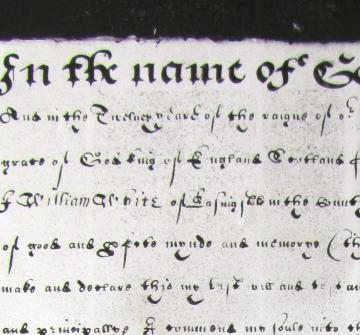 In the name of G
And in the Twelveth yeare of the raigne of o
grace of God king of England Scotland
I William White of in the Count
of good and p'fete mynde and memorye (th
make and declare this my last will and te
and principallye I commend my soule into